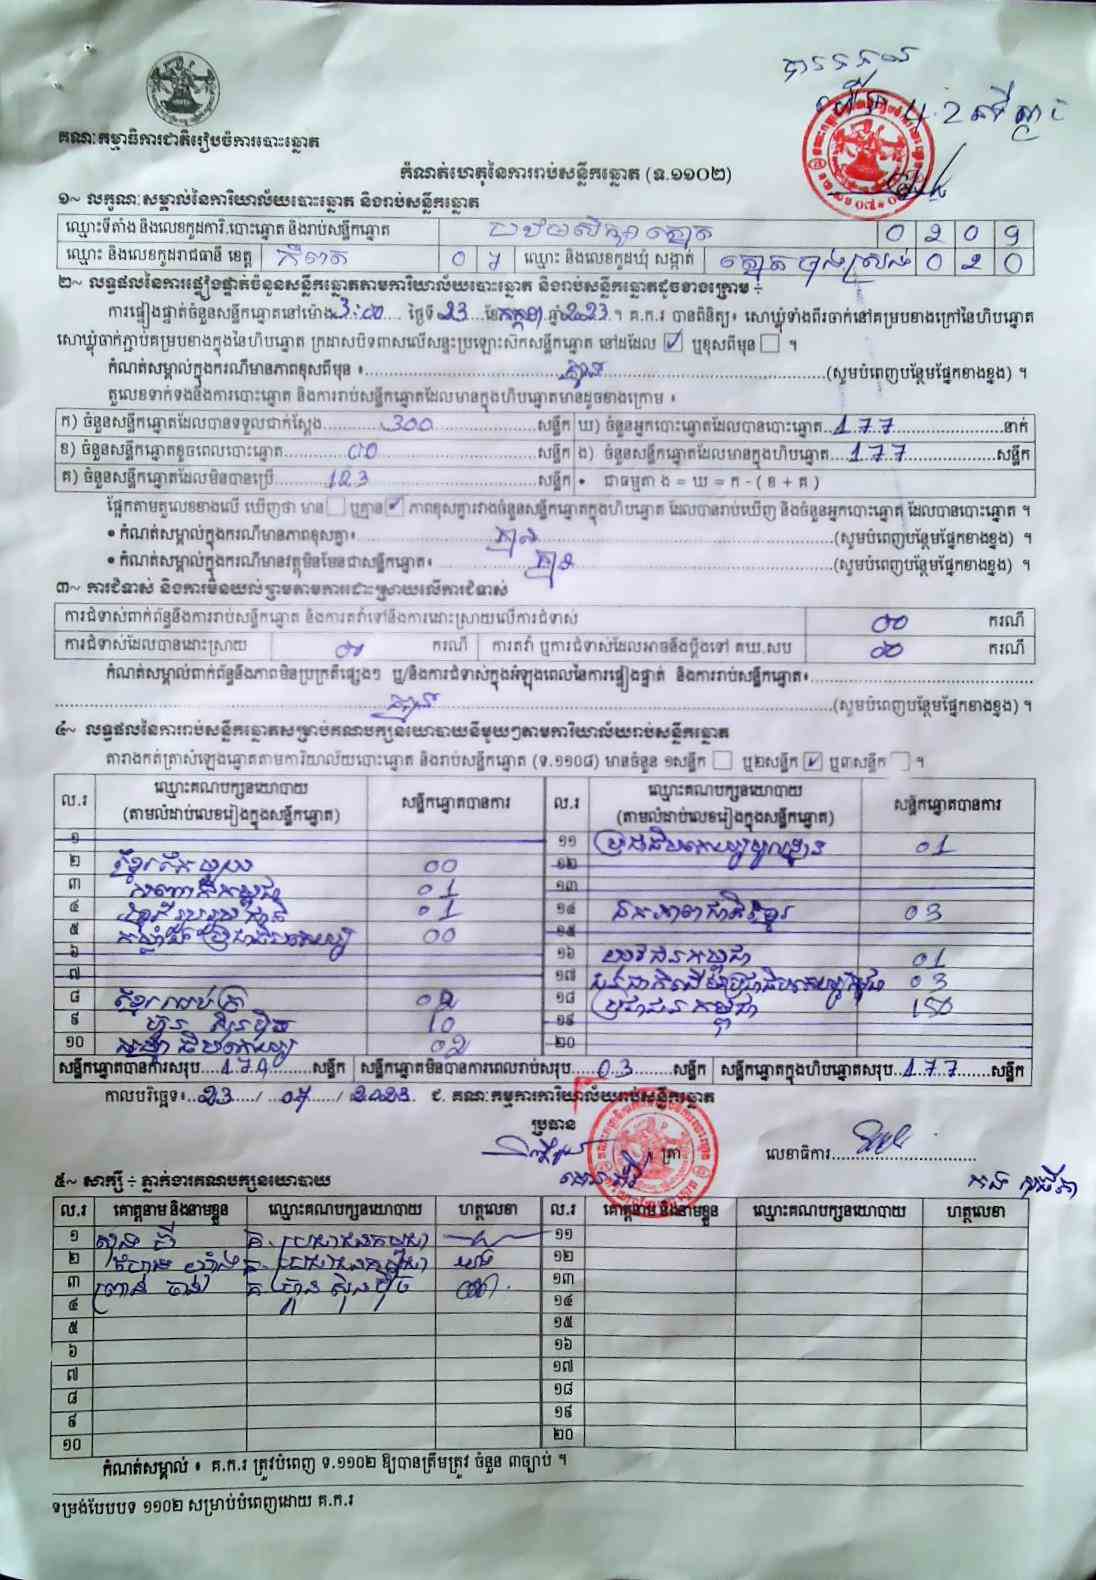 គណៈកម្មាធិការជាតិរៀបចំការបោះឆ្នោត
កំណត់ហេតុនៃការរាប់សន្លឹកឆ្នោត (ទ.១១០២)
១~ លក្ខណៈសម្គាល់នៃការិយាល័យបោះឆ្នោត និងរាប់សន្លឹកឆ្នោត
ឈ្មោះទីតាំង និងលេខកូដការិ.បោះឆ្នោត និងរាប់សន្លឹកឆ្នោត 0 2 0 9
ឈ្មោះ និងលេខកូដរាជធានី ខេត្ត កំពត 0 7 ឈ្មោះ និងលេខកូដឃុំ សង្កាត់ ត្បូង 0 2 0
២~ លទ្ធផលនៃការផ្ទៀងផ្ទាត់ចំនួនសន្លឹកឆ្នោតតាមការិយាល័យបោះឆ្នោត និងរាប់សន្លឹកឆ្នោតដូចខាងក្រោម ÷
ការផ្ទៀងផ្ទាត់ចំនួនសន្លឹកឆ្នោតនៅម៉ោង 3:00 ថ្ងៃទី 23 ខែ កក្កដា ឆ្នាំ 2023 ។ គ.ក.រ បានពិនិត្យ៖ សោឃ្លុំទាំងពីរចាក់នៅគម្របខាងក្រៅនៃហិបឆ្នោត
សោឃ្លុំចាក់ភ្ជាប់គម្របខាងក្នុងនៃហិបឆ្នោត ក្រដាសបិទពាសលើសន្ទះប្រឡោះសិកសន្លឹកឆ្នោត នៅដដែល ☑ ឬខុសពីមុន ☐ ។
កំណត់សម្គាល់ក្នុងករណីមានភាពខុសពីមុន ៖ គ្មាន (សូមបំពេញបន្ថែមផ្នែកខាងខ្នង) ។
តួលេខទាក់ទងនឹងការបោះឆ្នោត និងការរាប់សន្លឹកឆ្នោតដែលមានក្នុងហិបឆ្នោតមានដូចខាងក្រោម ៖
ក) ចំនួនសន្លឹកឆ្នោតដែលបានទទួលជាក់ស្តែង 300 សន្លឹក ឃ) ចំនួនអ្នកបោះឆ្នោតដែលបានបោះឆ្នោត 177 នាក់
ខ) ចំនួនសន្លឹកឆ្នោតខូចពេលបោះឆ្នោត 00 សន្លឹក ង) ចំនួនសន្លឹកឆ្នោតដែលមានក្នុងហិបឆ្នោត 177 សន្លឹក
គ) ចំនួនសន្លឹកឆ្នោតដែលមិនបានប្រើ 123 សន្លឹក • ជាធម្មតា ង = ឃ = ក - ( ខ + គ )
ផ្អែកតាមតួលេខខាងលើ ឃើញថា មាន ☐ ឬគ្មាន ☑ ភាពខុសគ្នារវាងចំនួនសន្លឹកឆ្នោតក្នុងហិបឆ្នោត ដែលបានរាប់ឃើញ និងចំនួនអ្នកបោះឆ្នោត ដែលបានបោះឆ្នោត ។
• កំណត់សម្គាល់ក្នុងករណីមានភាពខុសគ្នា៖ គ្មាន (សូមបំពេញបន្ថែមផ្នែកខាងខ្នង) ។
• កំណត់សម្គាល់ក្នុងករណីមានវត្ថុមិនមែនជាសន្លឹកឆ្នោត៖ គ្មាន (សូមបំពេញបន្ថែមផ្នែកខាងខ្នង) ។
៣~ ការជំទាស់ និងការមិនយល់ព្រមតាមការដោះស្រាយលើការជំទាស់
ការជំទាស់ពាក់ព័ន្ធនឹងការរាប់សន្លឹកឆ្នោត និងការតវ៉ាទៅនឹងការដោះស្រាយលើការជំទាស់ 00 ករណី
ការជំទាស់ដែលបានដោះស្រាយ 00 ករណី ការតវ៉ា ឬការជំទាស់ដែលអាចនឹងប្តឹងទៅ គឃ.សប 00 ករណី
កំណត់សម្គាល់ពាក់ព័ន្ធនឹងភាពមិនប្រក្រតីផ្សេងៗ ឬ/និងការជំទាស់ក្នុងអំឡុងពេលនៃការផ្ទៀងផ្ទាត់ និងការរាប់សន្លឹកឆ្នោត៖
គ្មាន (សូមបំពេញបន្ថែមផ្នែកខាងខ្នង) ។
៤~ លទ្ធផលនៃការរាប់សន្លឹកឆ្នោតសម្រាប់គណបក្សនយោបាយនីមួយៗតាមការិយាល័យរាប់សន្លឹកឆ្នោត
តារាងកត់ត្រាសំឡេងឆ្នោតតាមការិយាល័យបោះឆ្នោត និងរាប់សន្លឹកឆ្នោត (ទ.១១០៨) មានចំនួន ១សន្លឹក ☐ ឬ២សន្លឹក ☑ ឬ៣សន្លឹក ☐ ។
ល.រ ឈ្មោះគណបក្សនយោបាយ (តាមលំដាប់លេខរៀងក្នុងសន្លឹកឆ្នោត) សន្លឹកឆ្នោតបានការ ល.រ ឈ្មោះគណបក្សនយោបាយ (តាមលំដាប់លេខរៀងក្នុងសន្លឹកឆ្នោត) សន្លឹកឆ្នោតបានការ
១ ១១ ប្រជាធិបតេយ្យមូលដ្ឋាន 01
២ ខ្មែរតែមួយ 00 ១២
៣ 01 ១៣
៤ ខ្មែររួបរួមជាតិ 01 ១៤ ឯកភាពជាតិខ្មែរ 03
៥ កម្លាំងប្រជាធិបតេយ្យ 00 ១៥
៦ ១៦ យុវជនកម្ពុជា 01
៧ ១៧ 03
៨ 02 ១៨ ប្រជាជនកម្ពុជា 150
៩ ហ៊្វុនស៊ិនប៉ិច 10 ១៩
១០ 02 ២០
សន្លឹកឆ្នោតបានការសរុប 174 សន្លឹក សន្លឹកឆ្នោតមិនបានការពេលរាប់សរុប 03 សន្លឹក សន្លឹកឆ្នោតក្នុងហិបឆ្នោតសរុប 177 សន្លឹក
កាលបរិច្ឆេទ៖ 23 / 07 / 2023 ជ. គណៈកម្មការការិយាល័យរាប់សន្លឹកឆ្នោត
ប្រធាន
ត្រា លេខាធិការ
៥~ សាក្សី ÷ ភ្នាក់ងារគណបក្សនយោបាយ
ល.រ គោត្តនាម និងនាមខ្លួន ឈ្មោះគណបក្សនយោបាយ ហត្ថលេខា ល.រ គោត្តនាម និងនាមខ្លួន ឈ្មោះគណបក្សនយោបាយ ហត្ថលេខា
១ គ. ប្រជាជនកម្ពុជា ១១
២ គ. ប្រជាជនកម្ពុជា ១២
៣ គ. ហ៊្វុនស៊ិនប៉ិច ១៣
៤ ១៤
៥ ១៥
៦ ១៦
៧ ១៧
៨ ១៨
៩ ១៩
១០ ២០
កំណត់សម្គាល់ ៖ គ.ក.រ ត្រូវបំពេញ ទ.១១០២ ឱ្យបានត្រឹមត្រូវ ចំនួន ៣ច្បាប់ ។
ទម្រង់បែបបទ ១១០២ សម្រាប់បំពេញដោយ គ.ក.រ